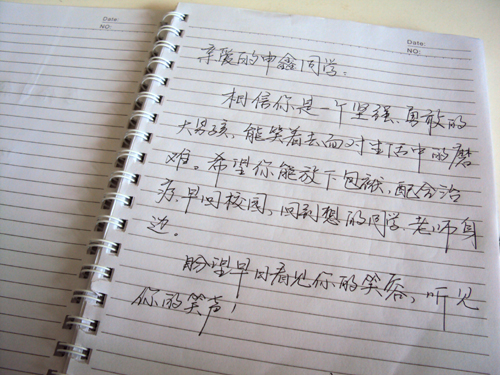 Date:
NO:
Date:
NO:
亲爱的申鑫同学:
相信你是一个坚强、勇敢的
大男孩,能笑着去面对生活中的磨
难。希望你能放下包袱,配合治
疗,早回校园,回到想的同学、老师身
边。
盼望早日看见你的笑容,听见
你的笑声!